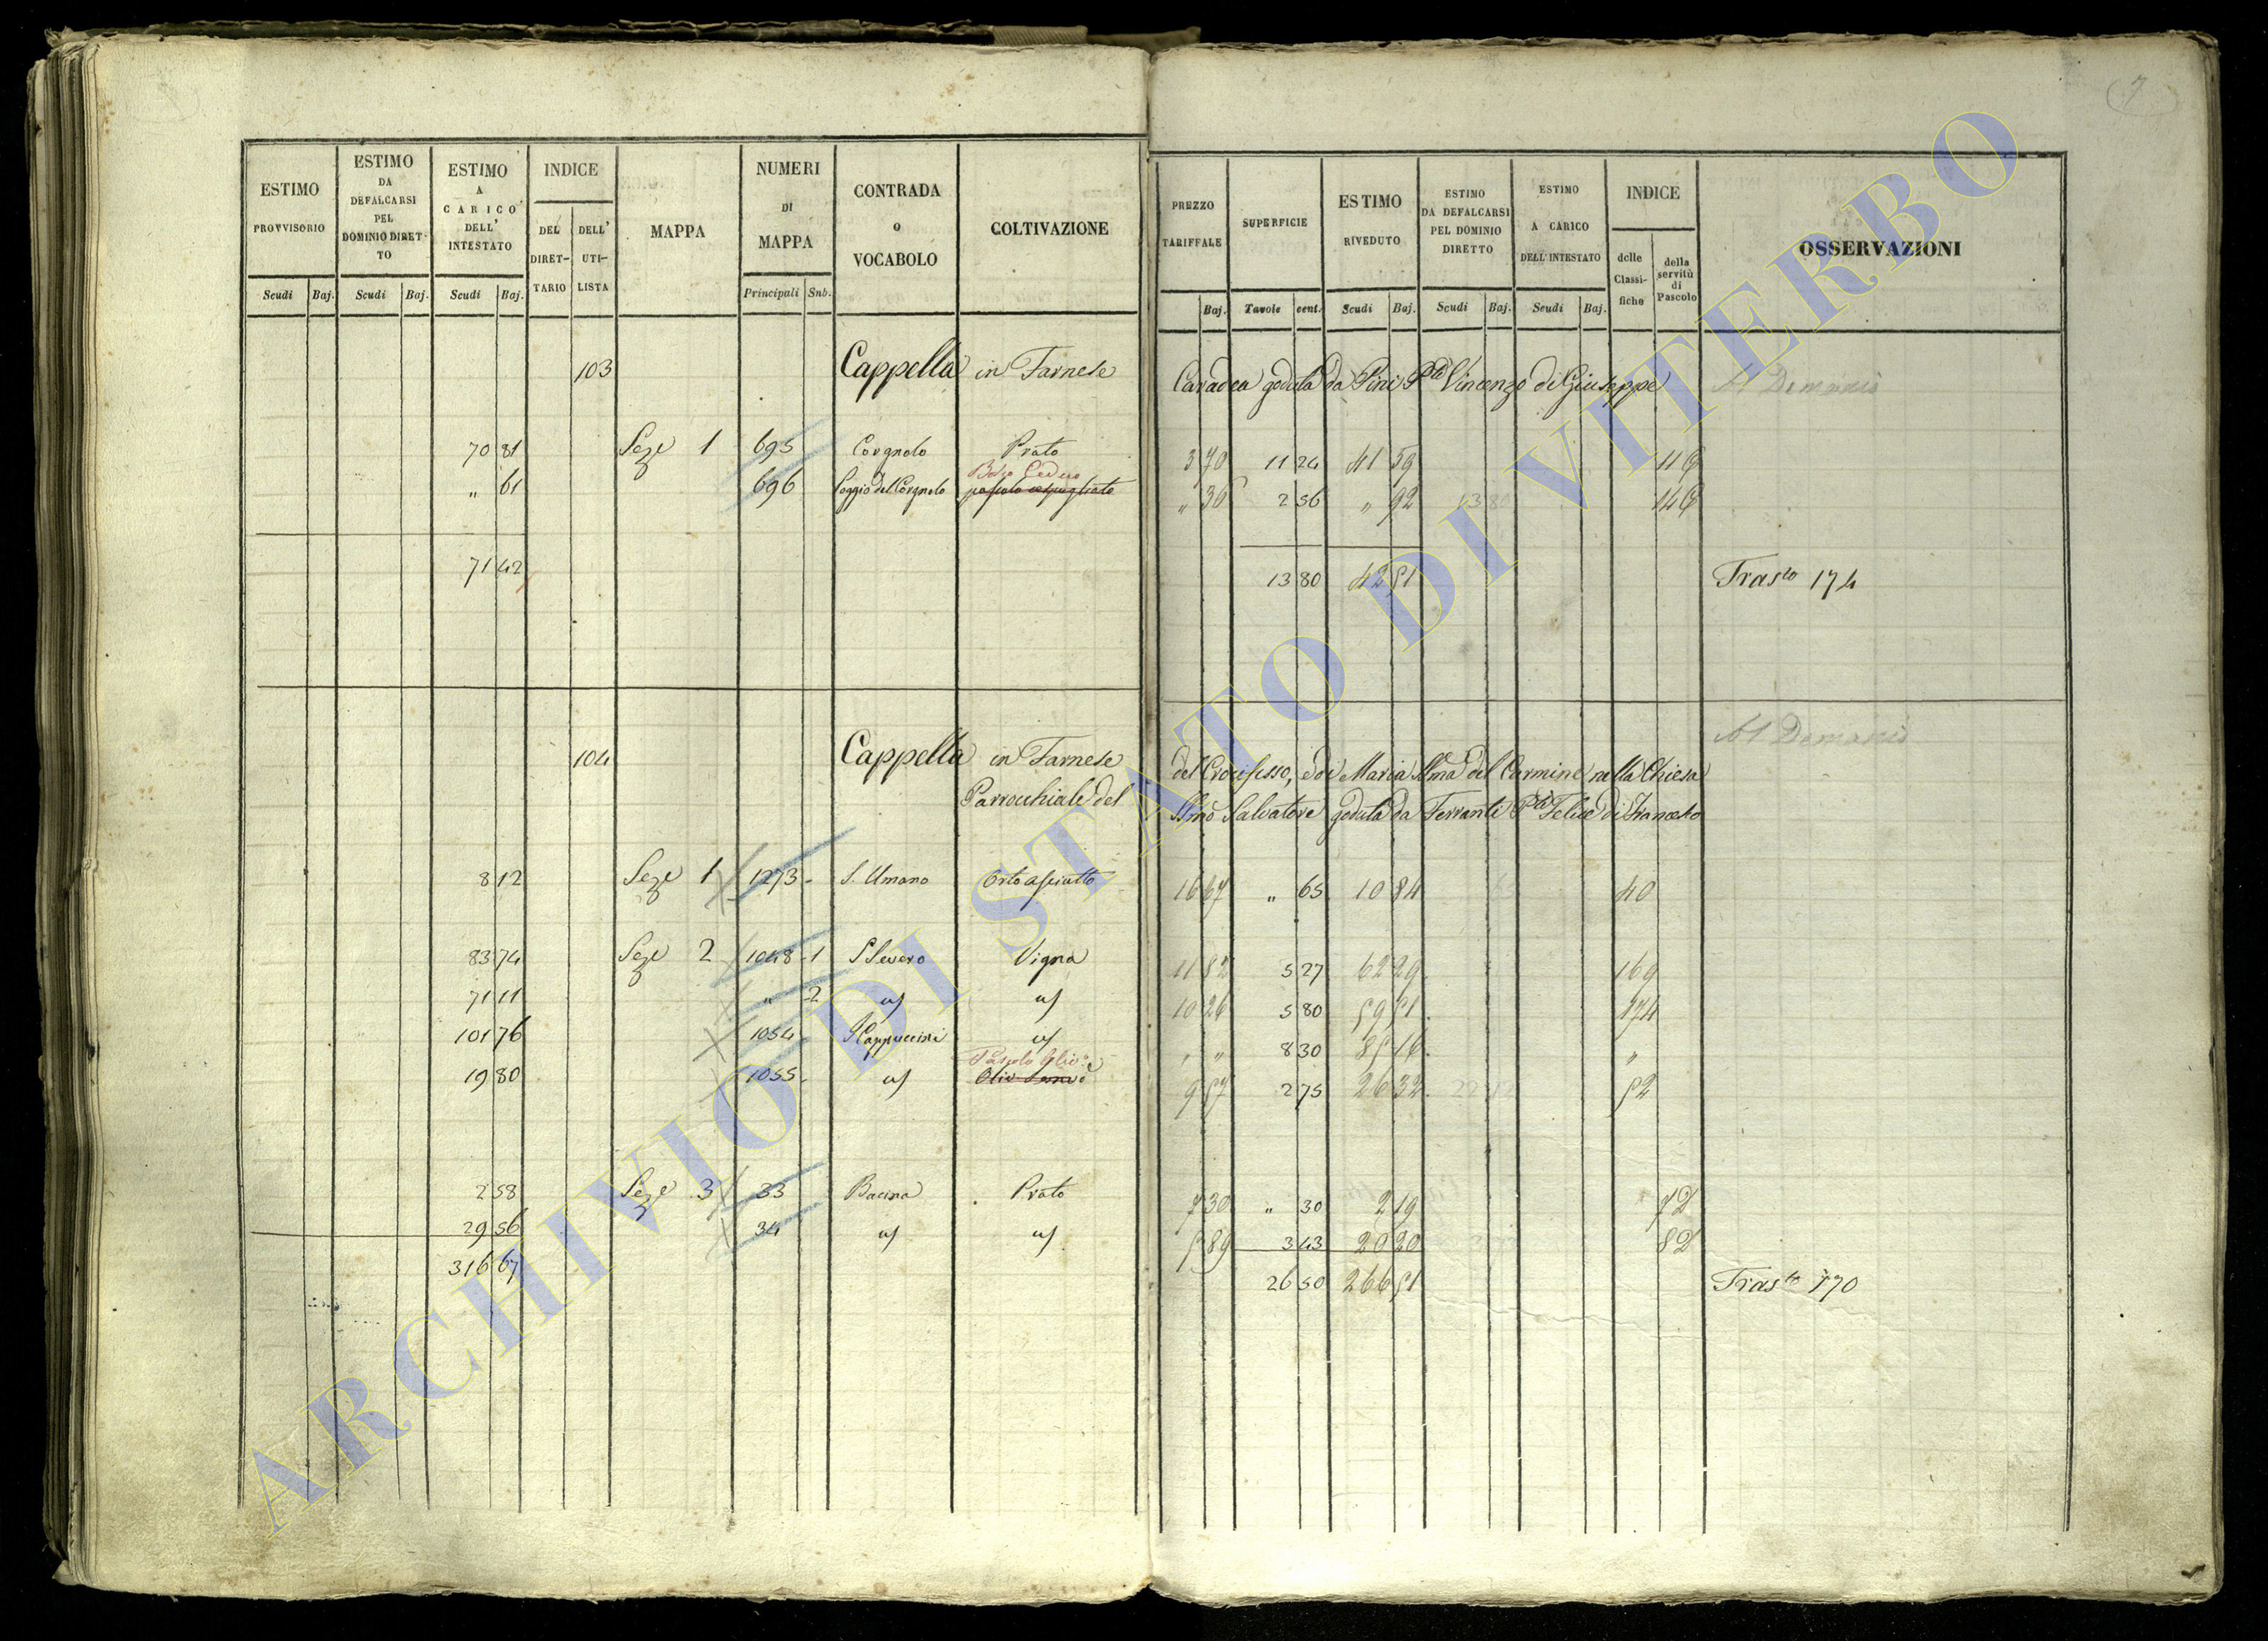 7
ESTIMO PROVVISORIO
ESTIMO DA DEFALCARSI PEL DOMINIO DIRET-TO
ESTIMO A CARICO DELL' INTESTATO
INDICE
DEL DIRET-TARIO
DELL' UTI-LISTA
MAPPA
NUMERI DI MAPPA
CONTRADA O VOCABOLO
COLTIVAZIONE
Scudi Baj. Scudi Baj. Scudi Baj. Principali Sub.
PREZZO TARIFFALE
SUPERFICIE
ESTIMO RIVEDUTO
ESTIMO DA DEFALCARSI PEL DOMINIO DIRETTO
ESTIMO A CARICO DELL'INTESTATO
INDICE
delle Classi-fiche
della servitù di Pascolo
OSSERVAZIONI
Baj. Tavole cent. Scudi Baj. Scudi Baj. Scudi Baj.
103 Cappella in Farnese goduta da Pini Vincenzo di Giuseppe Al Demanio
70 81 Seze 1 695 Corgnolo Prato 3 70 11 24 41 59 11
Bosco Ceduo
" 61 696 Poggio del Corgnolo pascolo cespugliato " 36 2 56 " 92 13 80 14
71 42 13 80 42 51 Trasto 174
104 Cappella in Farnese del Crocifisso, e di Maria SSma del Carmine nella Chiesa Al Demanio
Parrocchiale del SSmo Salvatore goduta da Ferranti Felice di Francesco
8 12 Seze 1 1273 S. Umano Orto asciutto 16 67 " 65 10 84 40
83 74 Seze 2 1048 1 S Severo Vigna 11 82 5 27 62 29 169
71 11 " 2 u/ u/ 10 26 5 80 59 51 174
101 76 1054 I Cappuccini u/ " " 8 30 85 16 "
Pascolo Oliv.
19 80 1055 u/ 9 57 2 75 26 32 52
2 58 Seze 3 33 Bacina Prato 7 30 " 30 2 19 72
29 56 34 u/ u/ 5 89 3 43 20 20 82
316 67 26 50 266 51 Trasto 170
ARCHIVIO DI STATO DI VITERBO